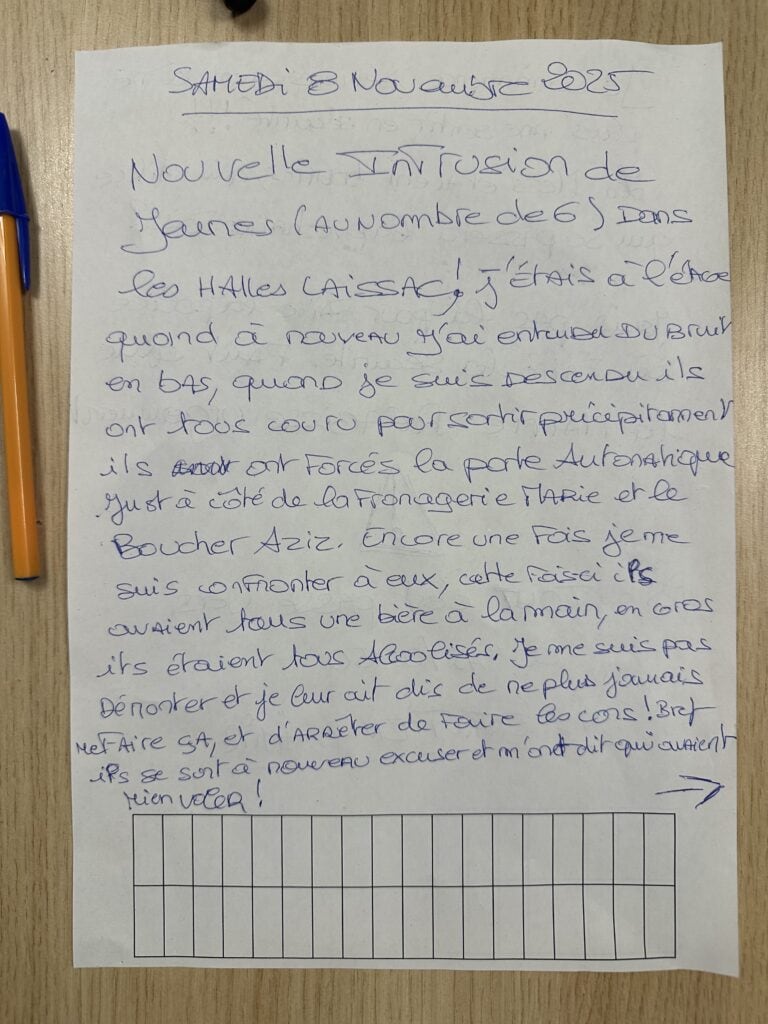 SAMEDI 8 Novembre 2025
Nouvelle INTrusion de
Jeunes (AU NOMbre de 6) Dans
les HAlles LAISSAC! j'ÉTAIS à l'ÉTAGE
quand à nouveau j'ai entendu DU Bruit
en bAS, quand je suis Descendu ils
ont tous couru pour sortir précipitament
ils ont Forcés la porte Automatique
Just à côté de la Fromagerie MARie et le
Boucher Aziz. Encore une Fois je me
suis confronter à eux, cette Foisci ils
avaient tous une bière à la main, en gros
ils étaient tous Alcolisés. Je me suis pas
Démonter et je leur ait dis de ne plus jamais
reFAire ÇA, et d'ARRêTer de Faire les cons! Bref
ils se sont à nouveau excuser et m'ont dit qu'i avaient
rien voler!
→